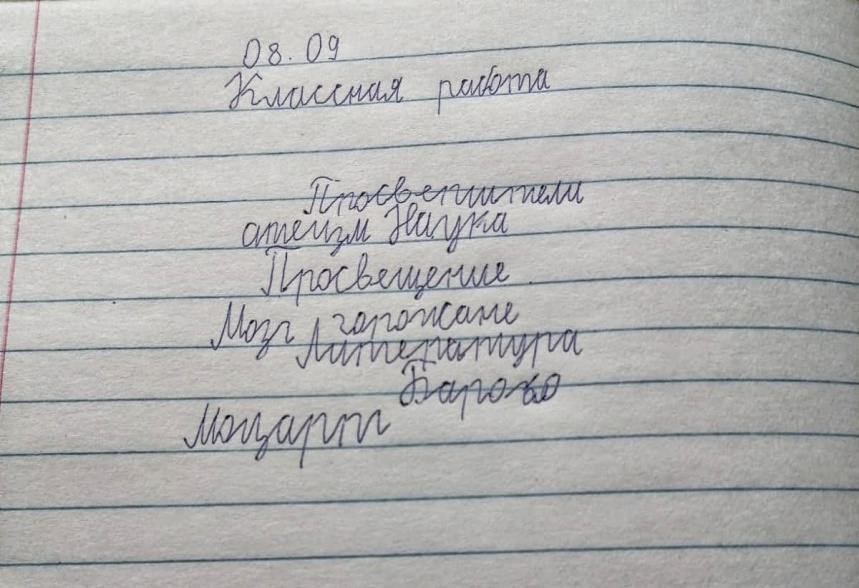 08.09
Классная работа
Просветители
атеизм Наука
Просвещение
Мозг горожане
Литература
Бароко
Моцарт